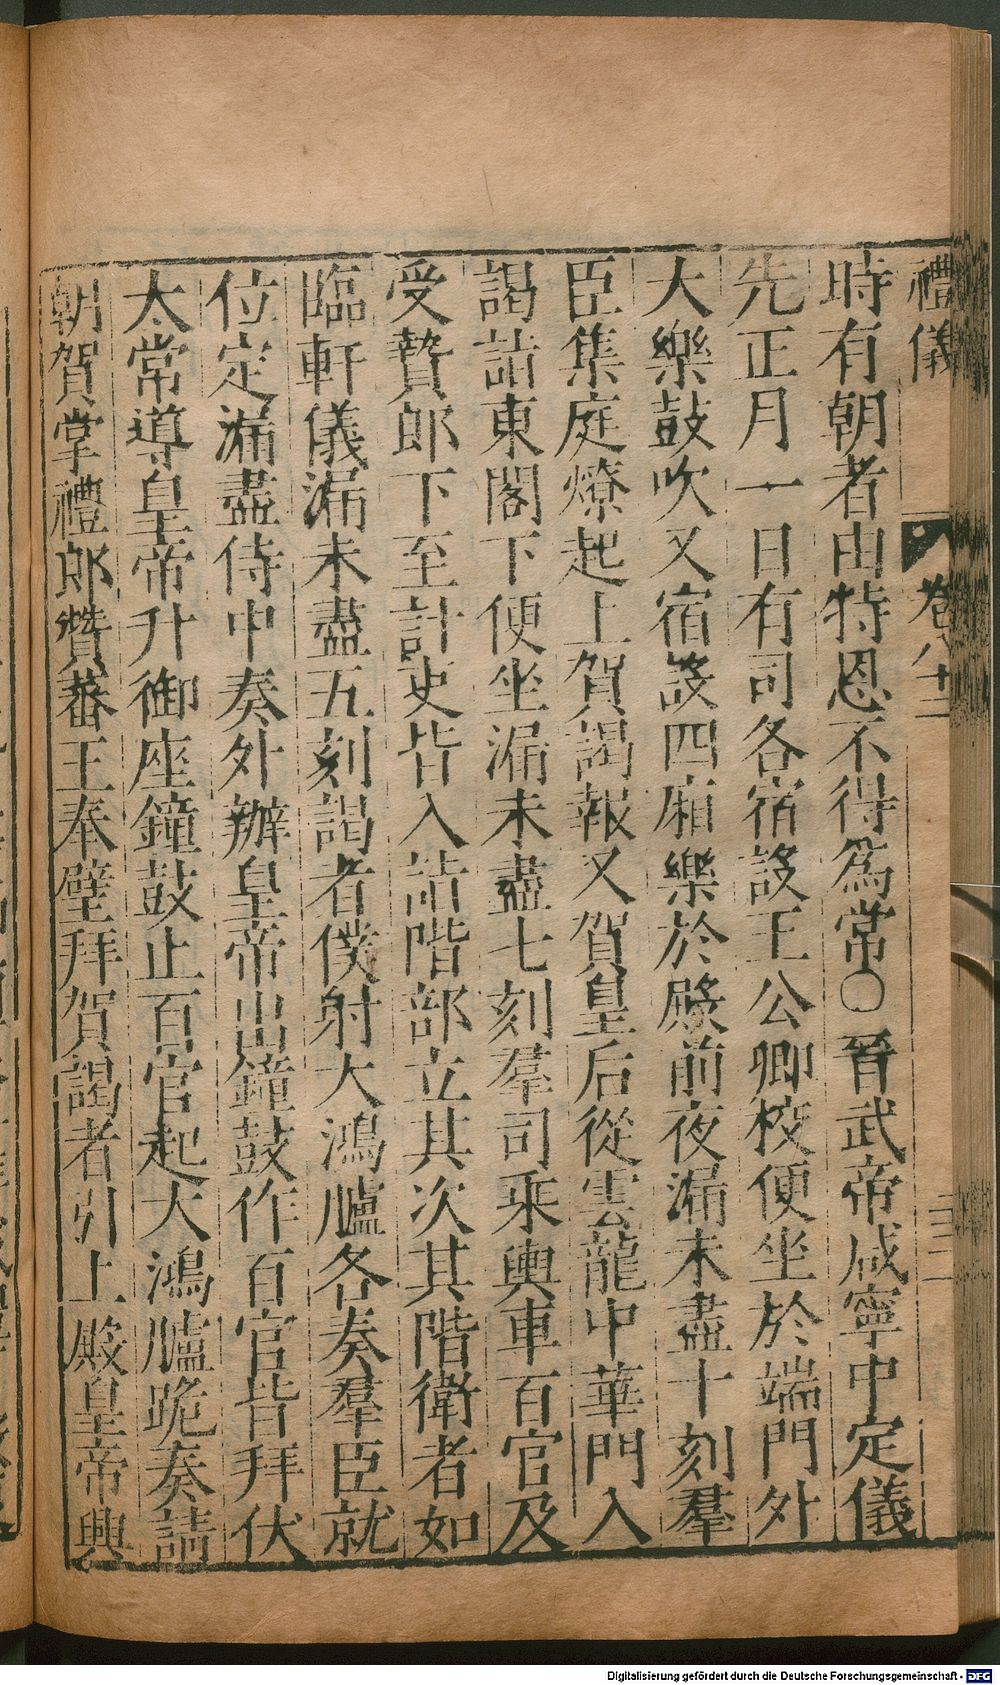 禮儀 卷八十二 三二
時有朝者由特恩不得為常○晉武帝咸寧中定儀
先正月一日有司各宿設王公卿校便坐於端門外
大樂鼓吹又宿設四廂樂於殿前夜漏未盡十刻羣
臣集庭燎起上賀謁報又賀皇后從雲龍中華門入
謁詣東閣下便坐漏未盡七刻羣司乘輿車百官及
受贄郎下至計吏皆入詣階部立其次其階衛者如
臨軒儀漏未盡五刻謁者僕射大鴻臚各奏羣臣就
位定漏盡侍中奏外辦皇帝出鐘鼓作百官皆拜伏
太常導皇帝升御座鐘鼓止百官起大鴻臚跪奏請
朝賀掌禮郎贊蕃王奉璧拜賀謁者引上殿皇帝興
Digitalisierung gefördert durch die Deutsche Forschungsgemeinschaft - DFG